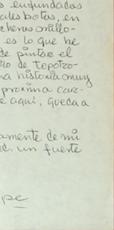 s enfundadas
ales botas, en
cheras orillo-
es lo que he
de pintse el
rio de tepotzo-
na historia muy
proxima car-
e aquí, queda a
amente de mi
d. un fuerte
pe